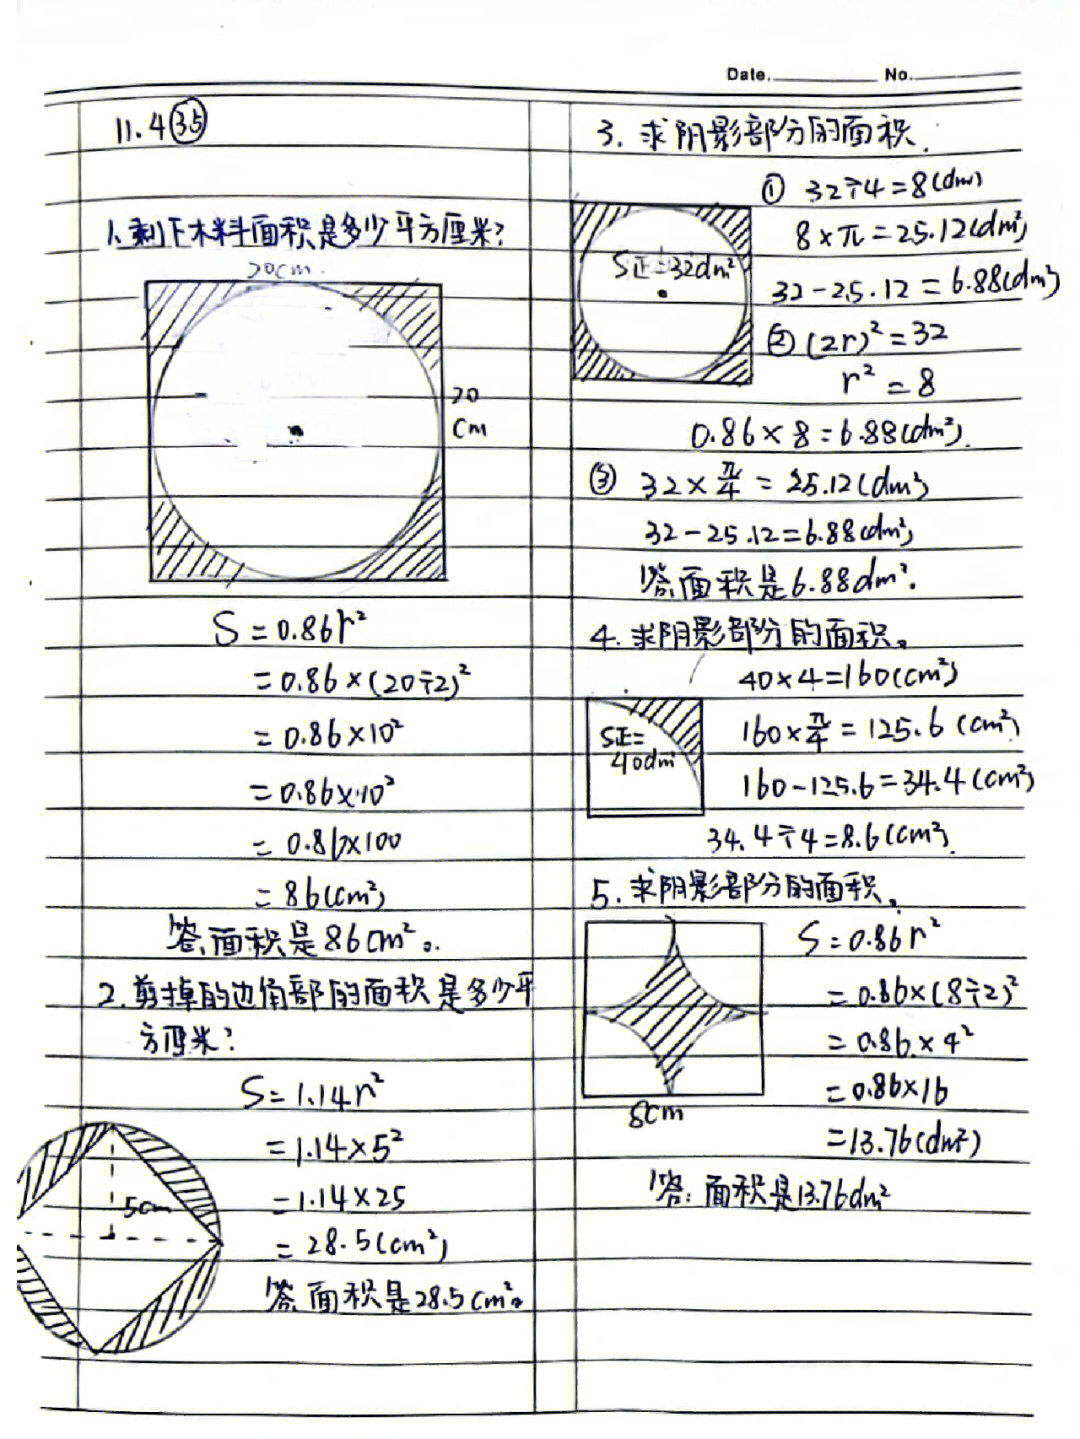 Date. No.
11.4 ㉟
1.剩下木料面积是多少平方厘米?
20cm.
20
cm
S=0.86r²
=0.86×(20÷2)²
=0.86×10²
=0.86×10²
=0.86×100
=86(cm²)
答.面积是86cm²。
2.剪掉的边角部的面积是多少平
方厘米?
S=1.14r²
=1.14×5²
5cm
=1.14×25
=28.5(cm²)
答.面积是28.5cm²。
3.求阴影部分的面积.
① 32÷4=8(dm)
S正=32dm²
8×π=25.12(dm²)
32-25.12=6.88(dm²)
② (2r)²=32
r²=8
0.86×8=6.88(dm²).
③ 32×π/4=25.12(dm²)
32-25.12=6.88(dm²)
答.面积是6.88dm².
4.求阴影部分的面积。
40×4=160(cm²)
S正=
40dm²
160×π/4=125.6(cm²)
160-125.6=34.4(cm²)
34.4÷4=8.6(cm²).
5.求阴影部分的面积。
8cm
S=0.86r²
=0.86×(8÷2)²
=0.86×4²
=0.86×16
=13.76(dm²)
答:面积是13.76dm²